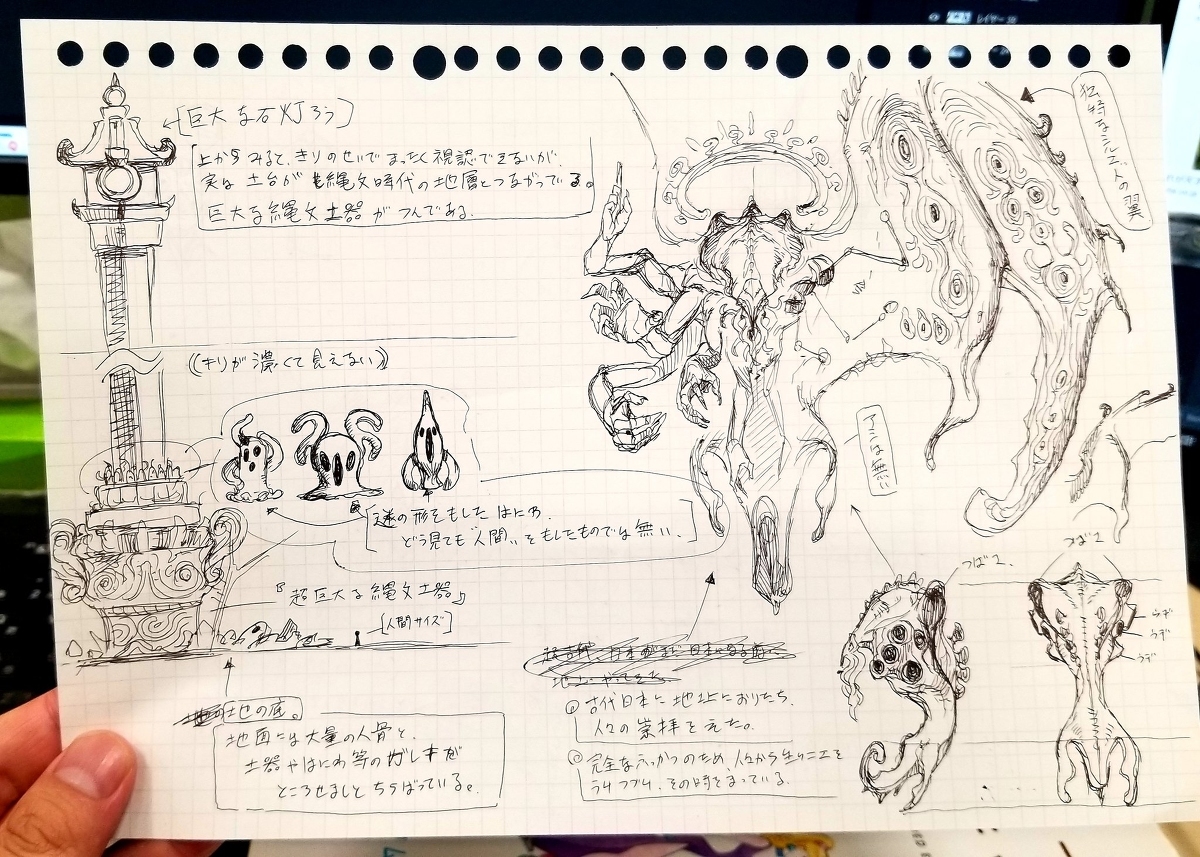 [巨大な石灯ろう]
上からみると、きりのせいでまったく視認できないが、
実は土台が縄文時代の地層とつながっている。
巨大な縄文土器がつんである。
((きりが濃くて見えない))
謎の形をもしたはにわ
どう見ても"人間"をもしたものでは無い。
『超巨大な縄文土器』
[人間サイズ]
土地の底。
地面には大量の人骨と、
土器やはにわ等のガレキが
ところせましとちらばっている。
独特なシルエットの翼
つばさ
つばさ
ウデ
ウデ
ウデ
① 古代日本に地上におりたち、
人々の崇拝をえた。
② 完全なふっかつのため、人々から
その時をまっている。